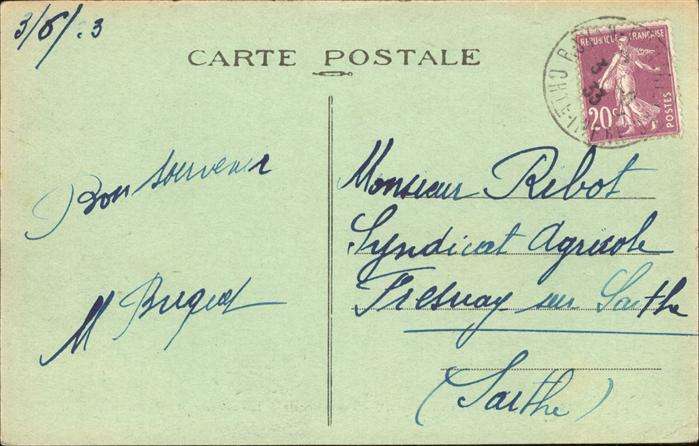 3/6/.3
CARTE POSTALE
REPUBLIQUE FRANÇAISE
20c
POSTES
Bon souvenir
M
Monsieur Ribot
Syndicat Agricole
Fresnay sur Sarthe
(Sarthe)